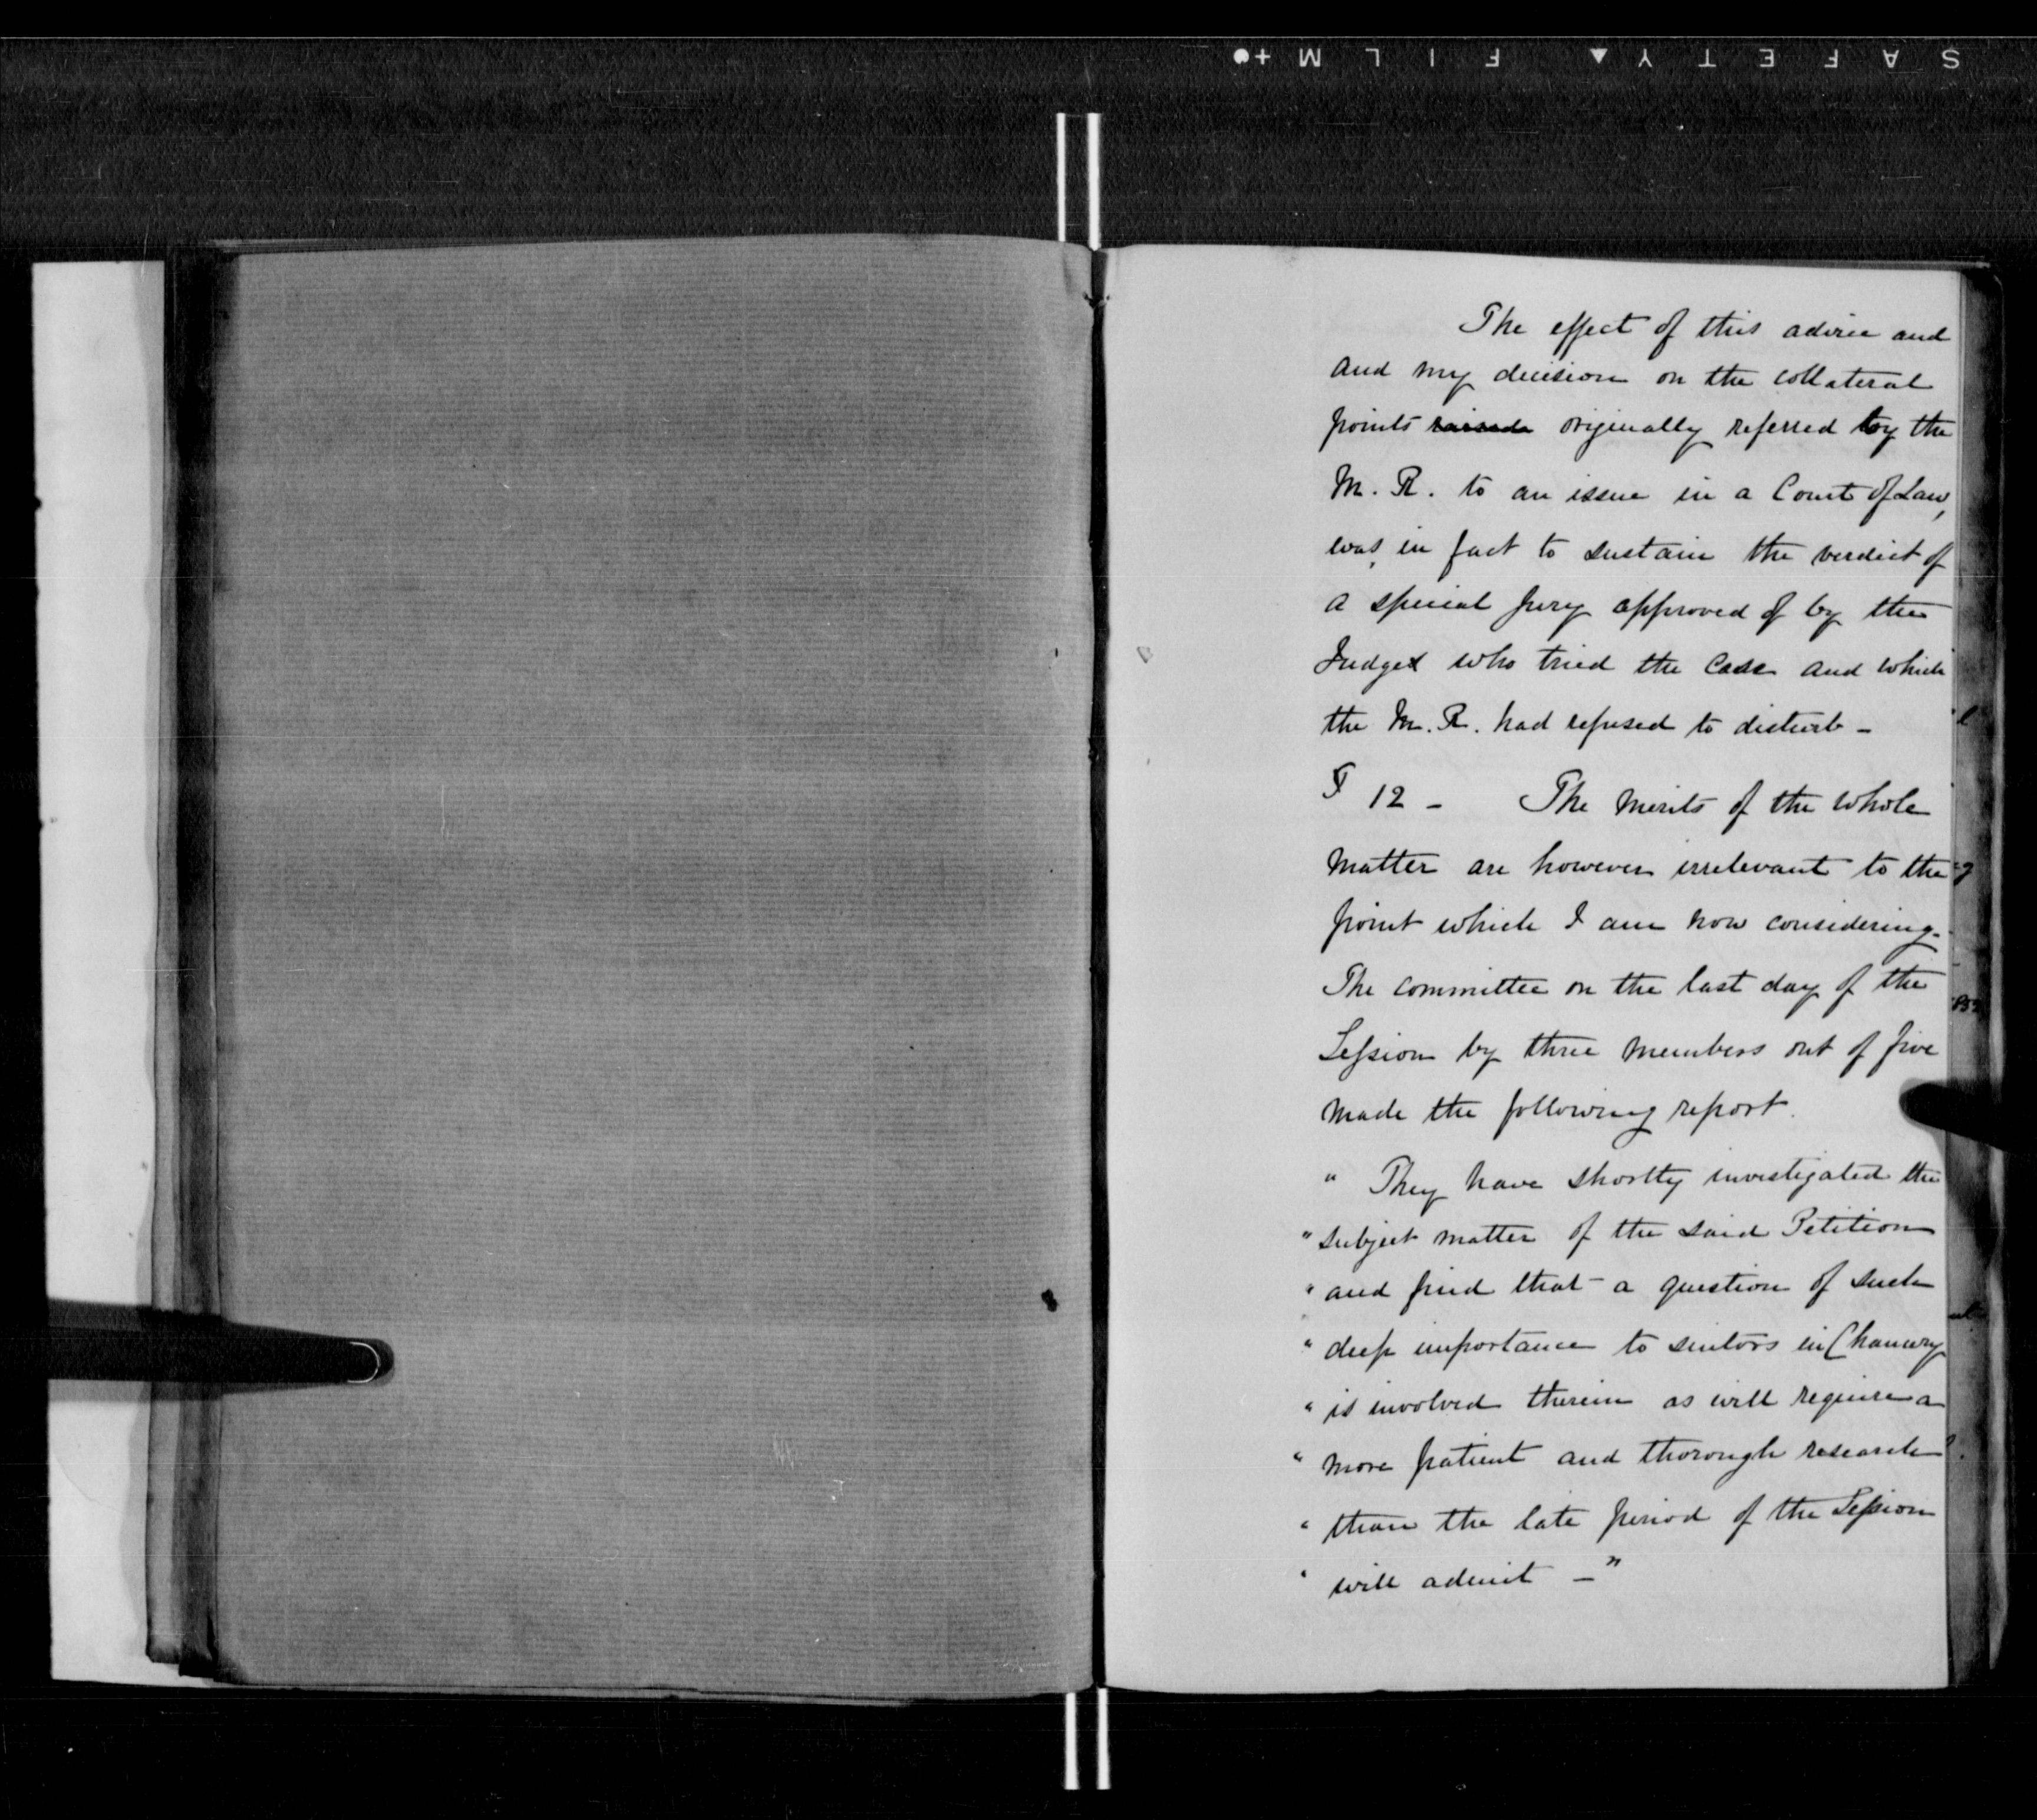 SAFETY ▲ FILM +●
The effect of this advice and
and my decision on the collateral
points raised originally referred by the
M. R. to an issue in a Court of Law,
was, in fact to sustain the verdict of
a special Jury approved of by the
Judges who tried the Case and which
the M. R. had refused to disturb -
12 - The merits of the whole
matter are however irrelevant to the
point which I am now considering.
The Committee on the last day of the
Session by three members out of five
made the following report.
" They have shortly investigated the
" subject matter of the said Petition
" and find that a question of such
" deep importance to suitors in Chancery
" is involved therein as will require a
" more patient and thorough research
" than the late period of the Session
" will admit - "